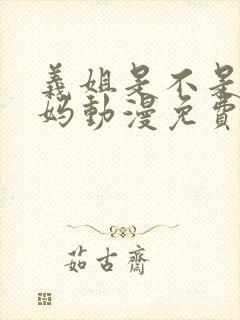 義姐是不是
妈動漫免費
茹古齋